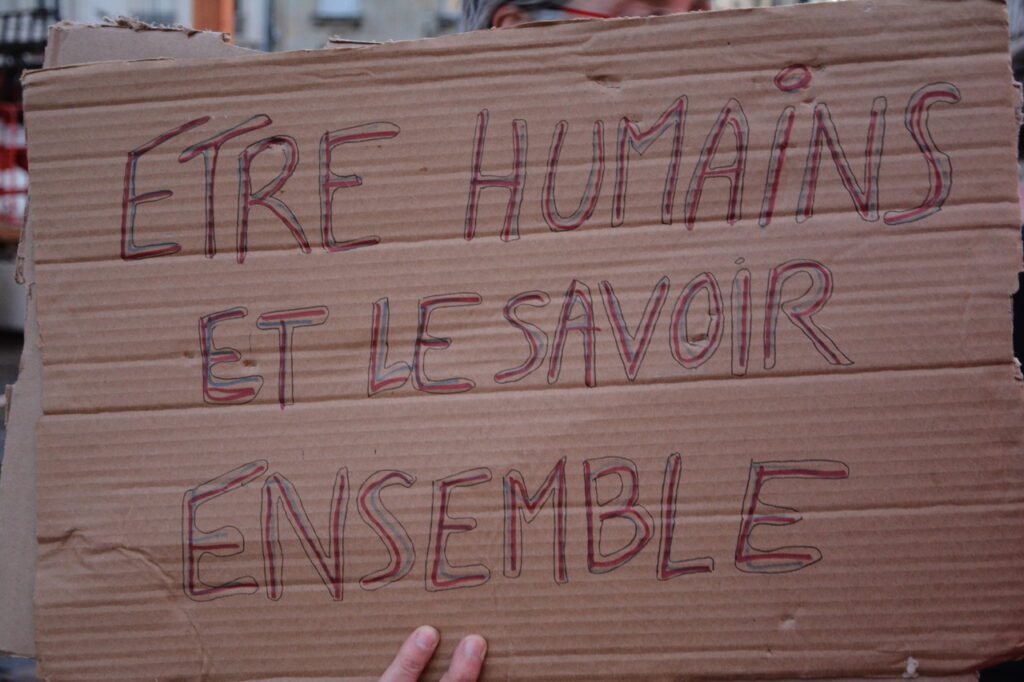 ETRE HUMAiNS
ET LE SAVOiR
ENSEMBLE